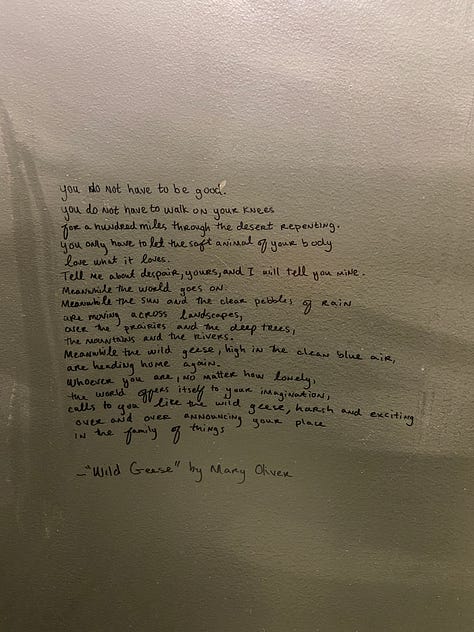 you do not have to be good.
you do not have to walk on your knees
for a hundred miles through the desert repenting.
you only have to let the soft animal of your body
love what it loves.
Tell me about despair, yours, and I will tell you mine.
Meanwhile the world goes on.
Meanwhile the sun and the clear pebbles of rain
are moving across landscapes,
over the prairies and the deep trees,
the mountains and the rivers.
Meanwhile the wild geese, high in the clean blue air,
are heading home again.
Whoever you are, no matter how lonely,
the world offers itself to your imagination,
calls to you like the wild geese, harsh and exciting
over and over announcing your place
in the family of things
– "Wild Geese" by Mary Oliver